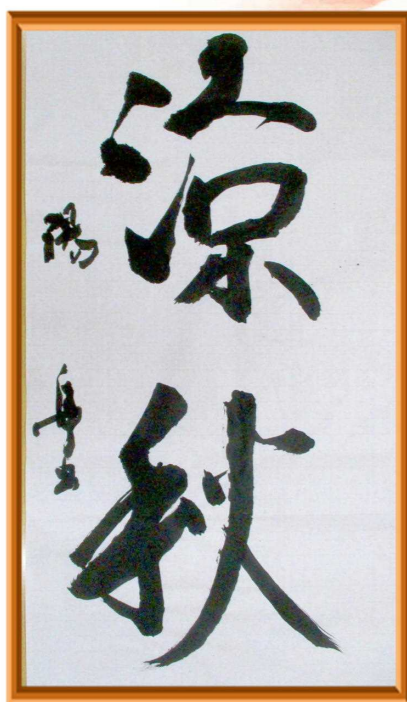 涼秋
陽